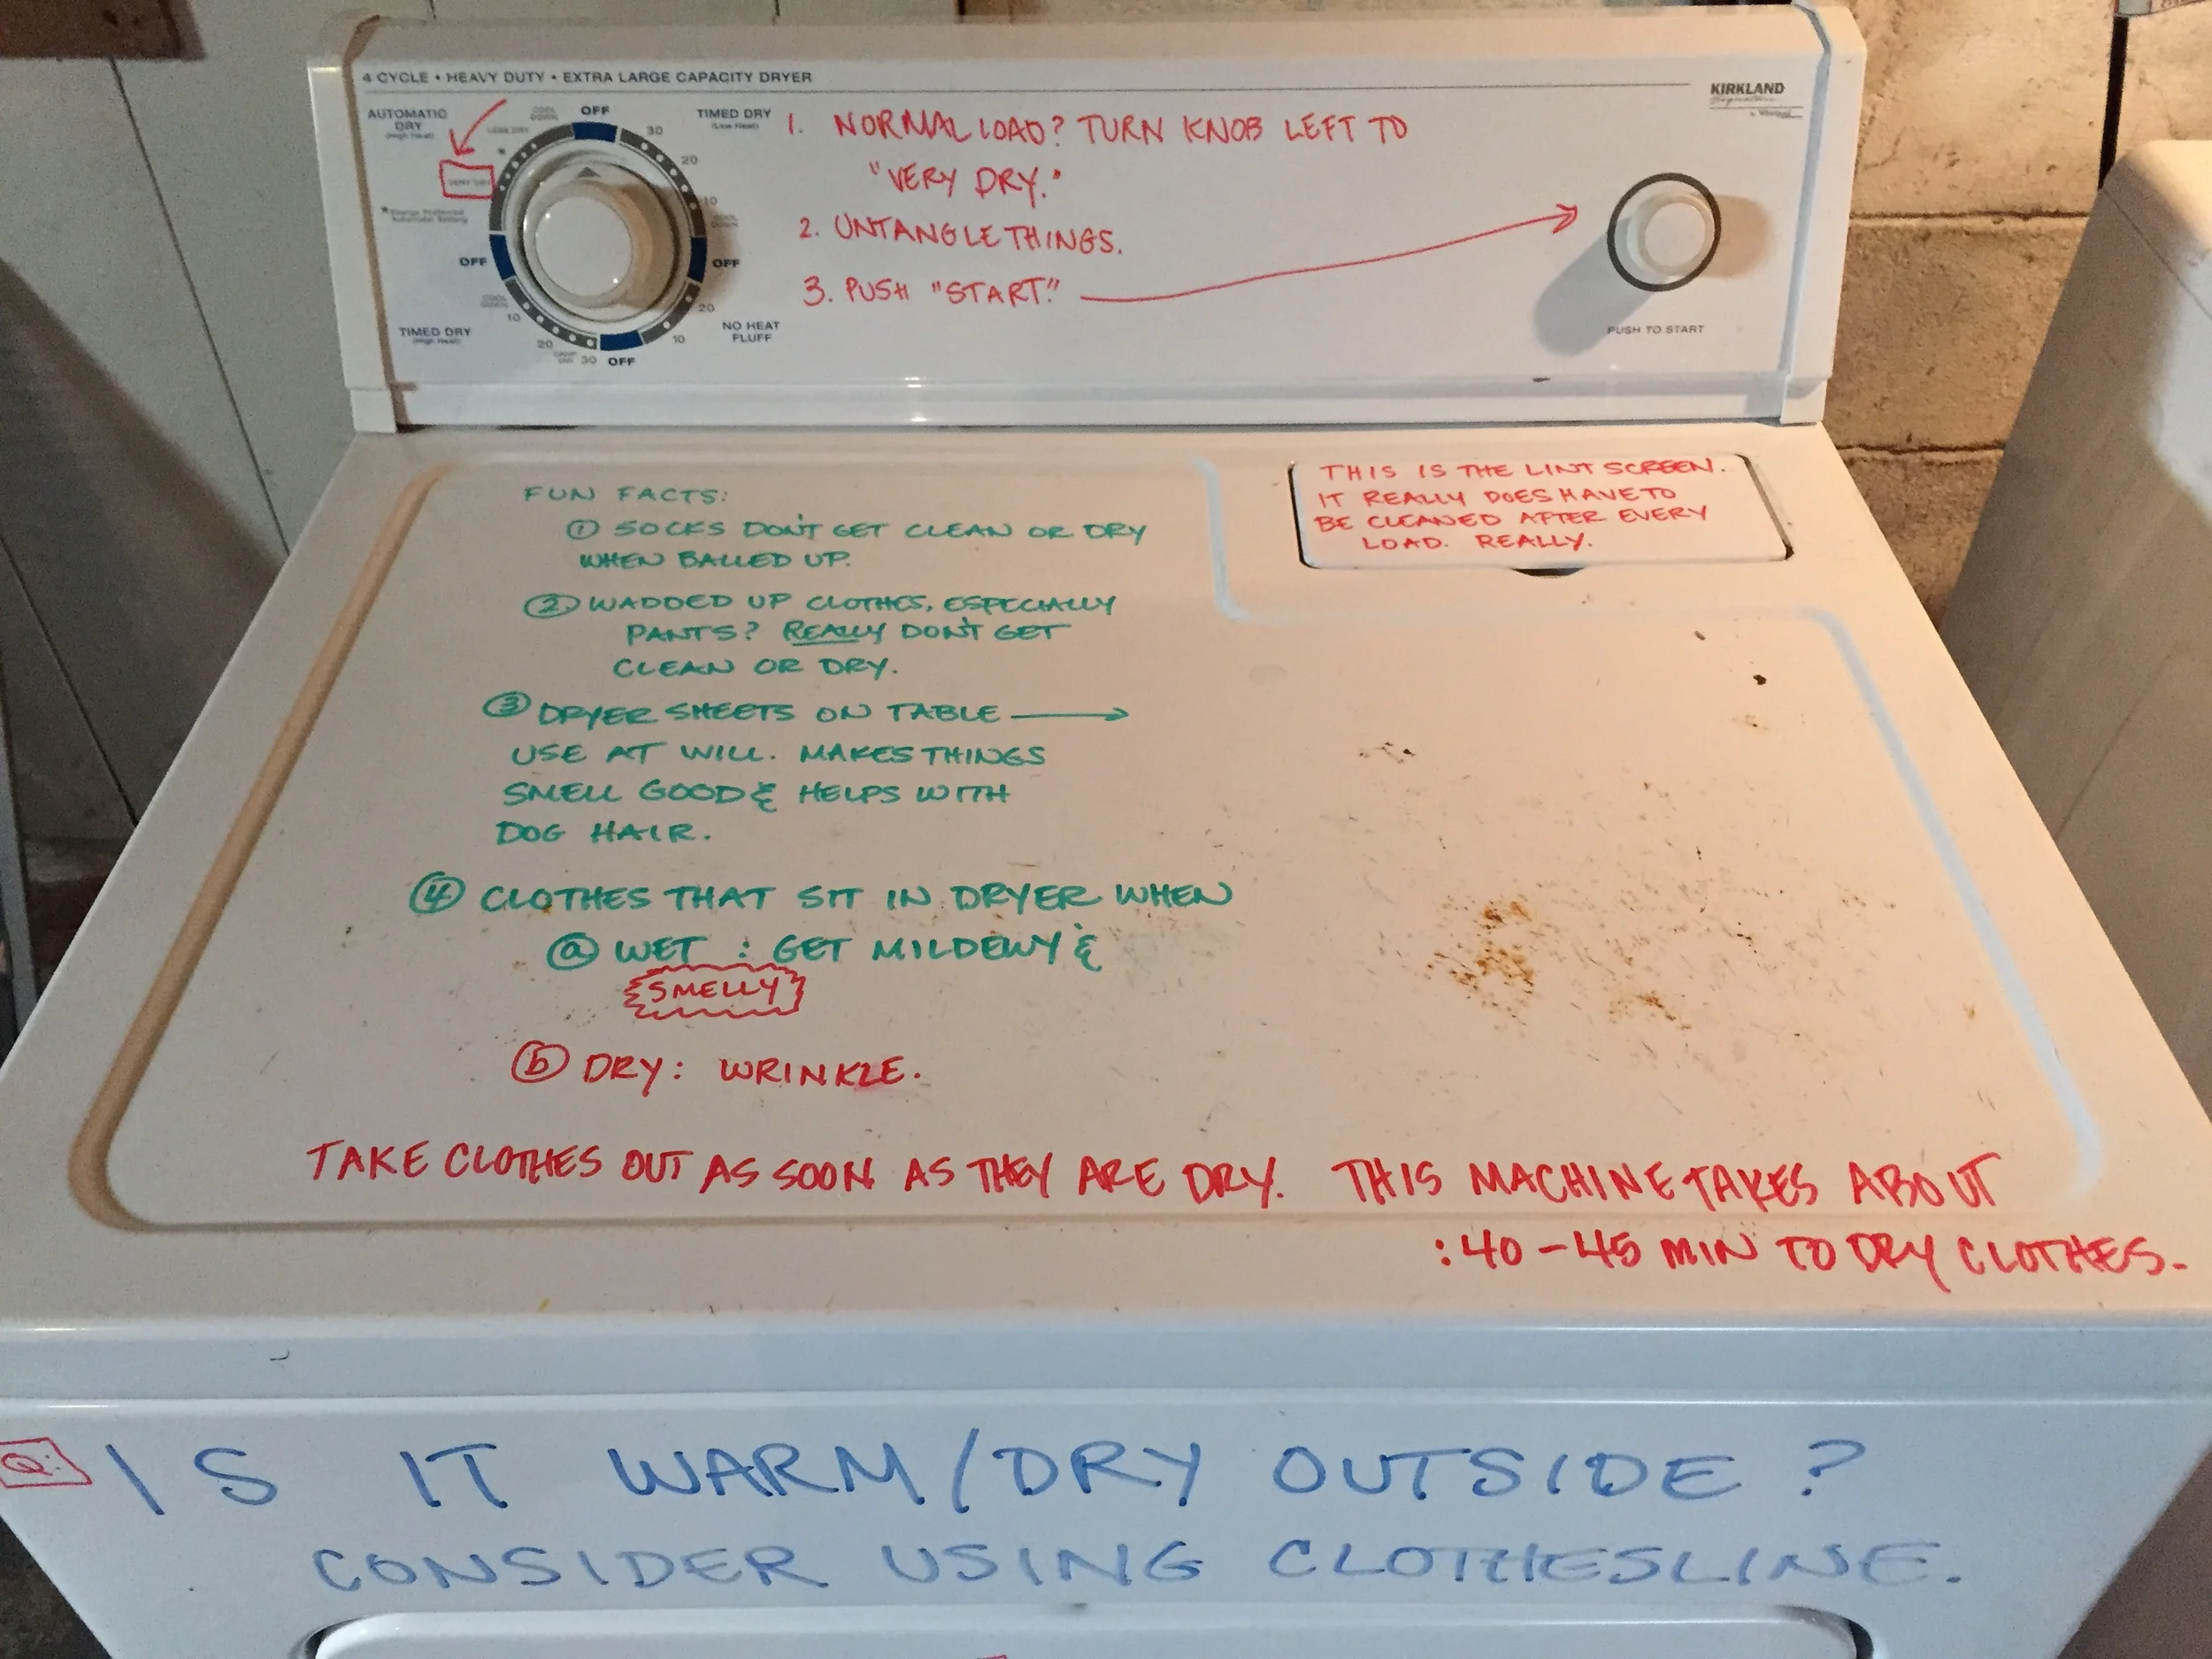 4 CYCLE • HEAVY DUTY • EXTRA LARGE CAPACITY DRYER
KIRKLAND
Signature
by Whirlpool
AUTOMATIC
DRY
(High Heat)
COOL
DOWN
OFF
TIMED DRY
(Low Heat)
LESS DRY
30
20
10
COOL
DOWN
VERY DRY
*Energy Preferred
Automatic Setting
OFF
OFF
COOL
DOWN
10
20
DAMP
DRY
30
OFF
TIMED DRY
(High Heat)
20
10
NO HEAT
FLUFF
PUSH TO START
1. NORMAL LOAD? TURN KNOB LEFT TO
"VERY DRY."
2. UNTANGLE THINGS.
3. PUSH "START."
THIS IS THE LINT SCREEN.
IT REALLY DOES HAVE TO
BE CLEANED AFTER EVERY
LOAD. REALLY.
FUN FACTS:
① SOCKS DON'T GET CLEAN OR DRY
WHEN BALLED UP.
② WADDED UP CLOTHES, ESPECIALLY
PANTS? REALLY DON'T GET
CLEAN OR DRY.
③ DRYER SHEETS ON TABLE →
USE AT WILL. MAKES THINGS
SMELL GOOD & HELPS WITH
DOG HAIR.
④ CLOTHES THAT SIT IN DRYER WHEN
ⓐ WET : GET MILDEWY &
SMELLY
ⓑ DRY: WRINKLE.
TAKE CLOTHES OUT AS SOON AS THEY ARE DRY. THIS MACHINE TAKES ABOUT
:40-45 MIN TO DRY CLOTHES.
Q: IS IT WARM/DRY OUTSIDE?
CONSIDER USING CLOTHESLINE.